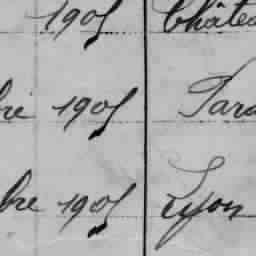 1905 Châtea
bre 1905 Para
bre 1905 Lyon